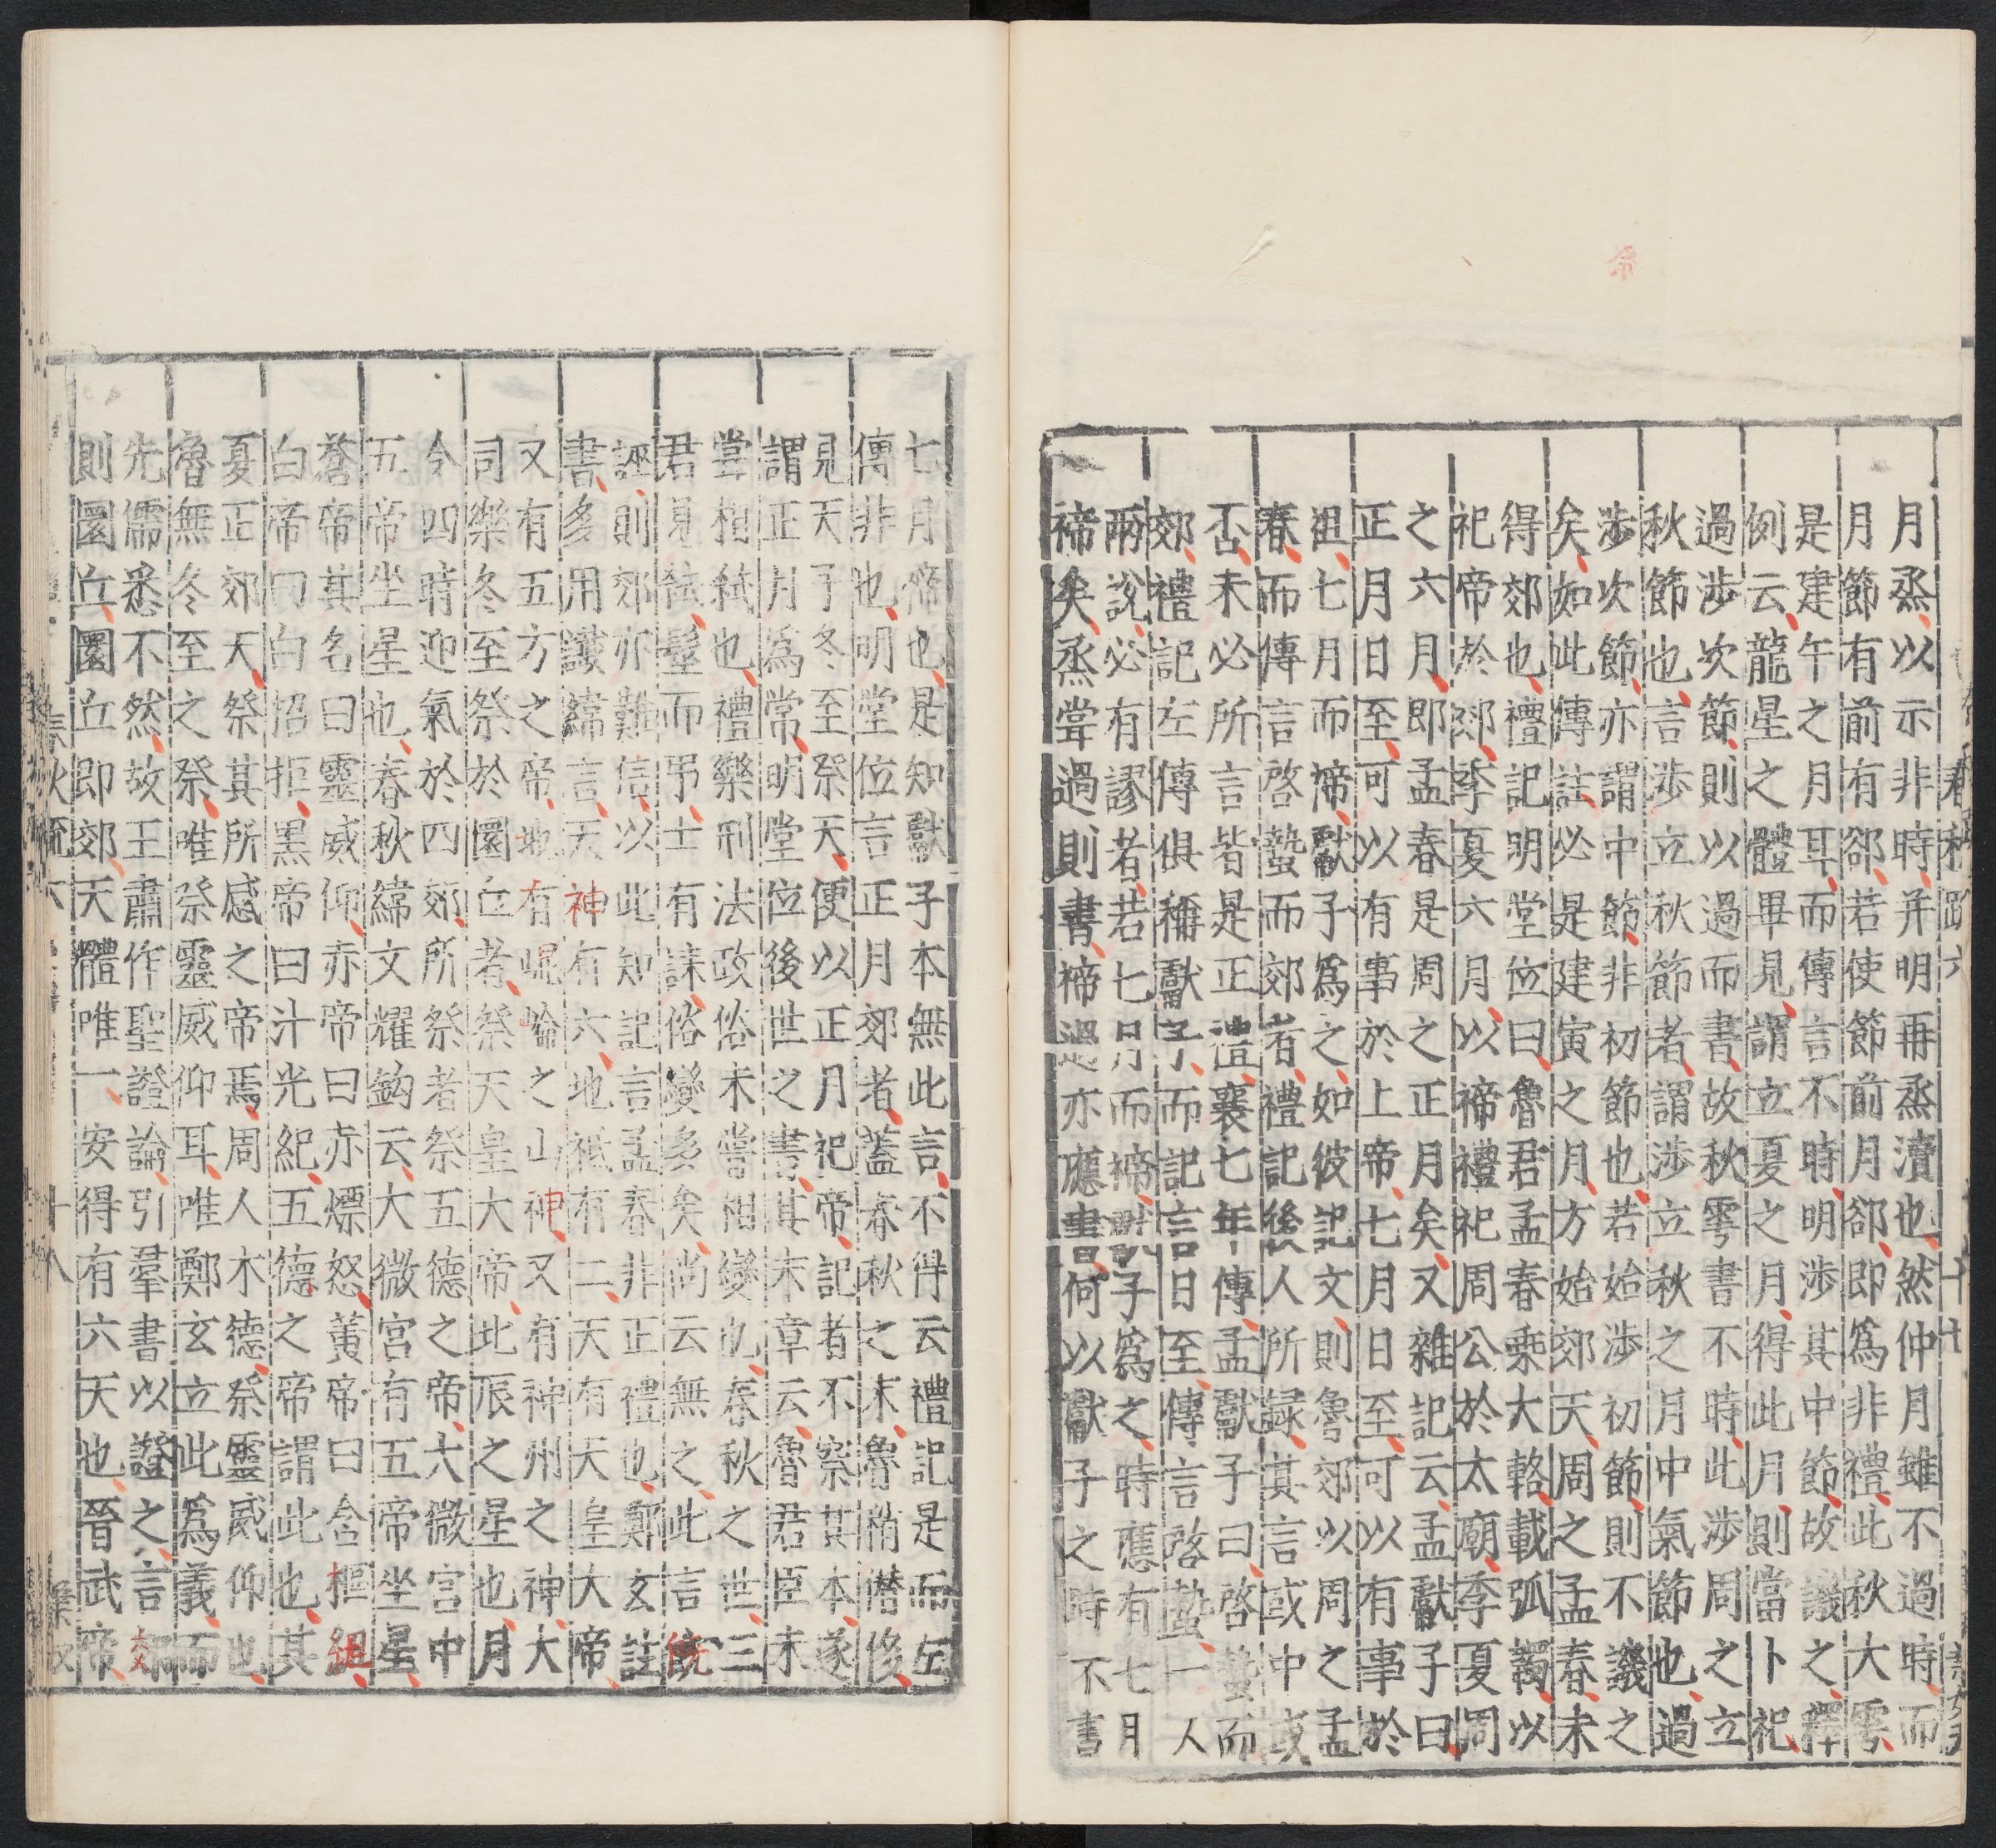 春秋疏六 十七
月烝以示非時并明再烝瀆也然仲月雖不過時而
月節有前有郤若使節前月郤即爲非禮此秋大雩
是建午之月耳而傳言不時明涉其中節故譏之釋
例云龍星之體畢見謂立夏之月得此月則當卜祀
過涉次節則以過而書故秋雩書不時此涉周之立
秋節也言涉立秋節者謂涉立秋之月中氣節也過
涉次節亦謂中節非初節也若始涉初節則不譏之
矣如此傳註必是建寅之月方始郊天周之孟春未
得郊也禮記明堂位曰魯君孟春乗大輅載弧韣以
祀帝於郊季夏六月以禘禮祀周公於太廟季夏周
之六月即孟春是周之正月矣又雜記云孟獻子曰
正月日至可以有事於上帝七月日至可以有事於
祖七月而禘獻子爲之如彼記文則魯郊以周之孟
春而傳言啓蟄而郊者禮記後人所録其言或中或
否未必所言皆是正禮襄七年傳孟獻子曰啓蟄而
郊禮記左傳俱稱獻子而記言日至傳言啓蟄一人
兩說必有謬者若七月而禘獻子爲之時應有七月
禘矣烝嘗過則書禘過亦應書何以獻子之時不書
七月禘也是知獻子本無此言不得云禮記是而左
傳非也明堂位言正月郊者蓋春秋之末魯稍僭侈
見天子冬至祭天便以正月祀帝記者不察其本遂
謂正月爲常明堂位後世之書其末章云魯君臣未
嘗相弒也禮樂刑法政俗未嘗相變也春秋之世三
君見弒髽而弔士有誄俗變多矣尚云無之此言既
誣則郊亦難信以此知記言孟春非正禮也鄭玄註
書多用讖緯言天神有六地祗有二天有天皇大帝
又有五方之帝地有崐崘之山神又有神州之神大
司樂冬至祭於圜丘者祭天皇大帝北辰之星也月
令四時迎氣於四郊所祭者祭五德之帝大微宮中
五帝坐星也春秋緯文耀鉤云大微宮有五帝坐星
蒼帝其名曰靈威仰赤帝曰赤熛怒黃帝曰含樞紐
白帝曰白招拒黑帝曰汁光紀五德之帝謂此也其
夏正郊天祭其所感之帝焉周人木德祭靈威仰也
魯無冬至之祭唯祭靈威仰耳唯鄭玄立此爲義而
先儒悉不然故王肅作聖證論引羣書以證之言郊
則圜丘圜丘即郊天體唯一安得有六天也晉武帝
春秋疏六 十八